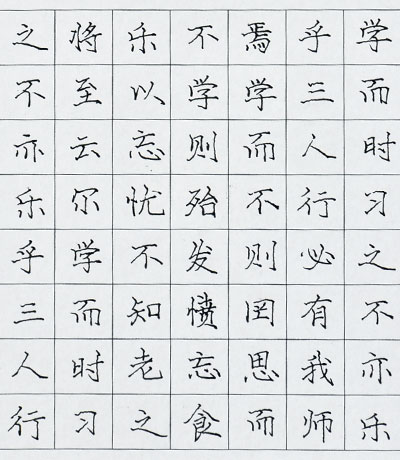 学而时习之不亦乐
乎三人行必有我师
焉学而不则罔思而
不学则殆发愤忘食
乐以忘忧不知老之
将至云尔学而时习
之不亦乐乎三人行